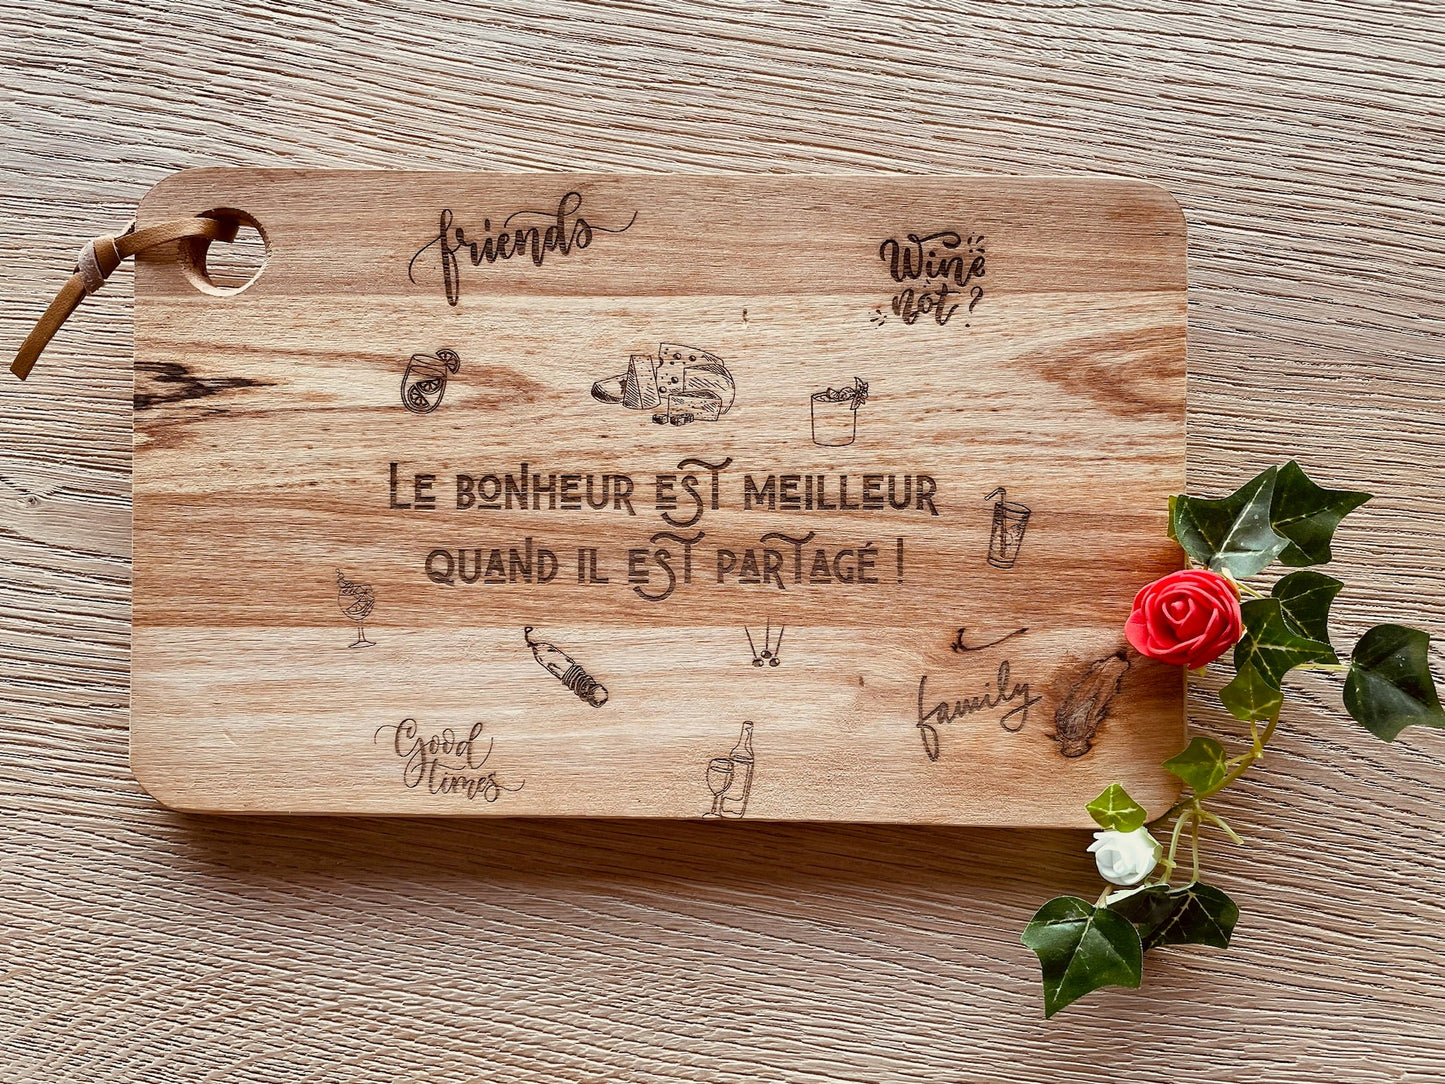 friends
Wine
not ?
LE BONHEUR EST MEILLEUR
QUAND IL EST PARTAGÉ !
family
Good
times